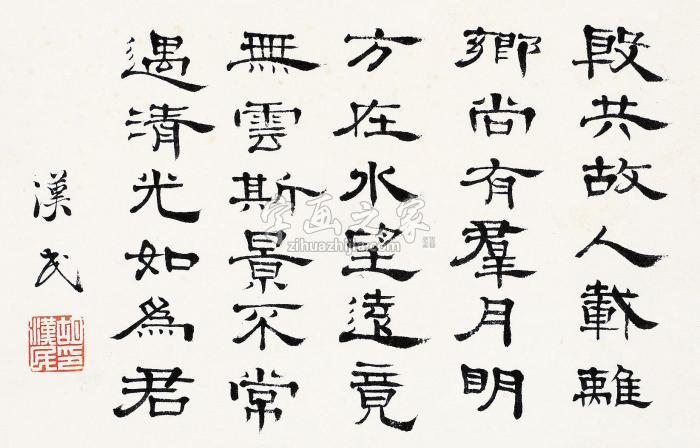 段共故人載離
鄉尚有羣月明
方在水望遠竟
無雲斯景不常
遇清光如爲君
漢民
字画之家
zihuazhijia.com